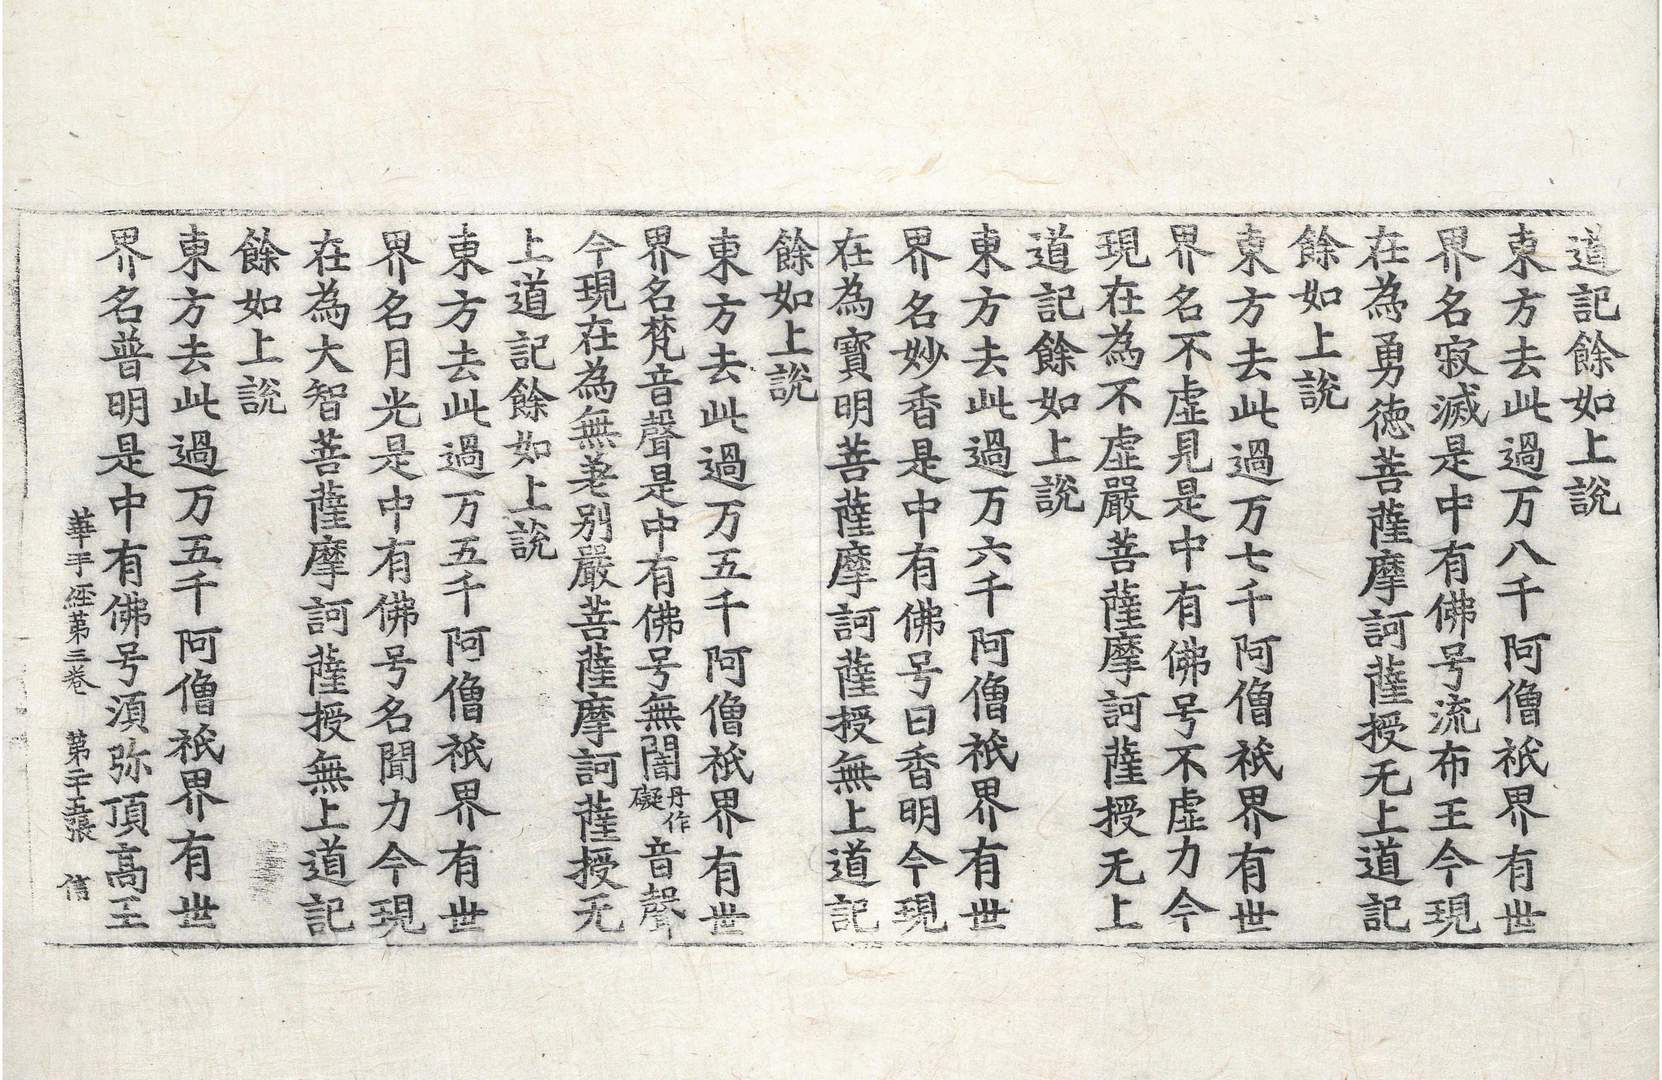 道記餘如上說
東方去此過万八千阿僧祇界有世
界名寂滅是中有佛号流布王今現
在為勇德菩薩摩訶薩授无上道記
餘如上說
東方去此過万七千阿僧祇界有世
界名不虛見是中有佛号不虛力今
現在為不虛嚴菩薩摩訶薩授无上
道記餘如上說
東方去此過万六千阿僧祇界有世
界名妙香是中有佛号曰香明今現
在為寶明菩薩摩訶薩授無上道記
餘如上說
東方去此過万五千阿僧祇界有世
界名梵音聲是中有佛号無闇丹作礙音聲
今現在為無差別嚴菩薩摩訶薩授无
上道記餘如上說
東方去此過万五千阿僧祇界有世
界名月光是中有佛号名聞力今現
在為大智菩薩摩訶薩授無上道記
餘如上說
東方去此過万五千阿僧祇界有世
界名普明是中有佛号湏弥頂高王
華手経第三卷 第二十五張 信